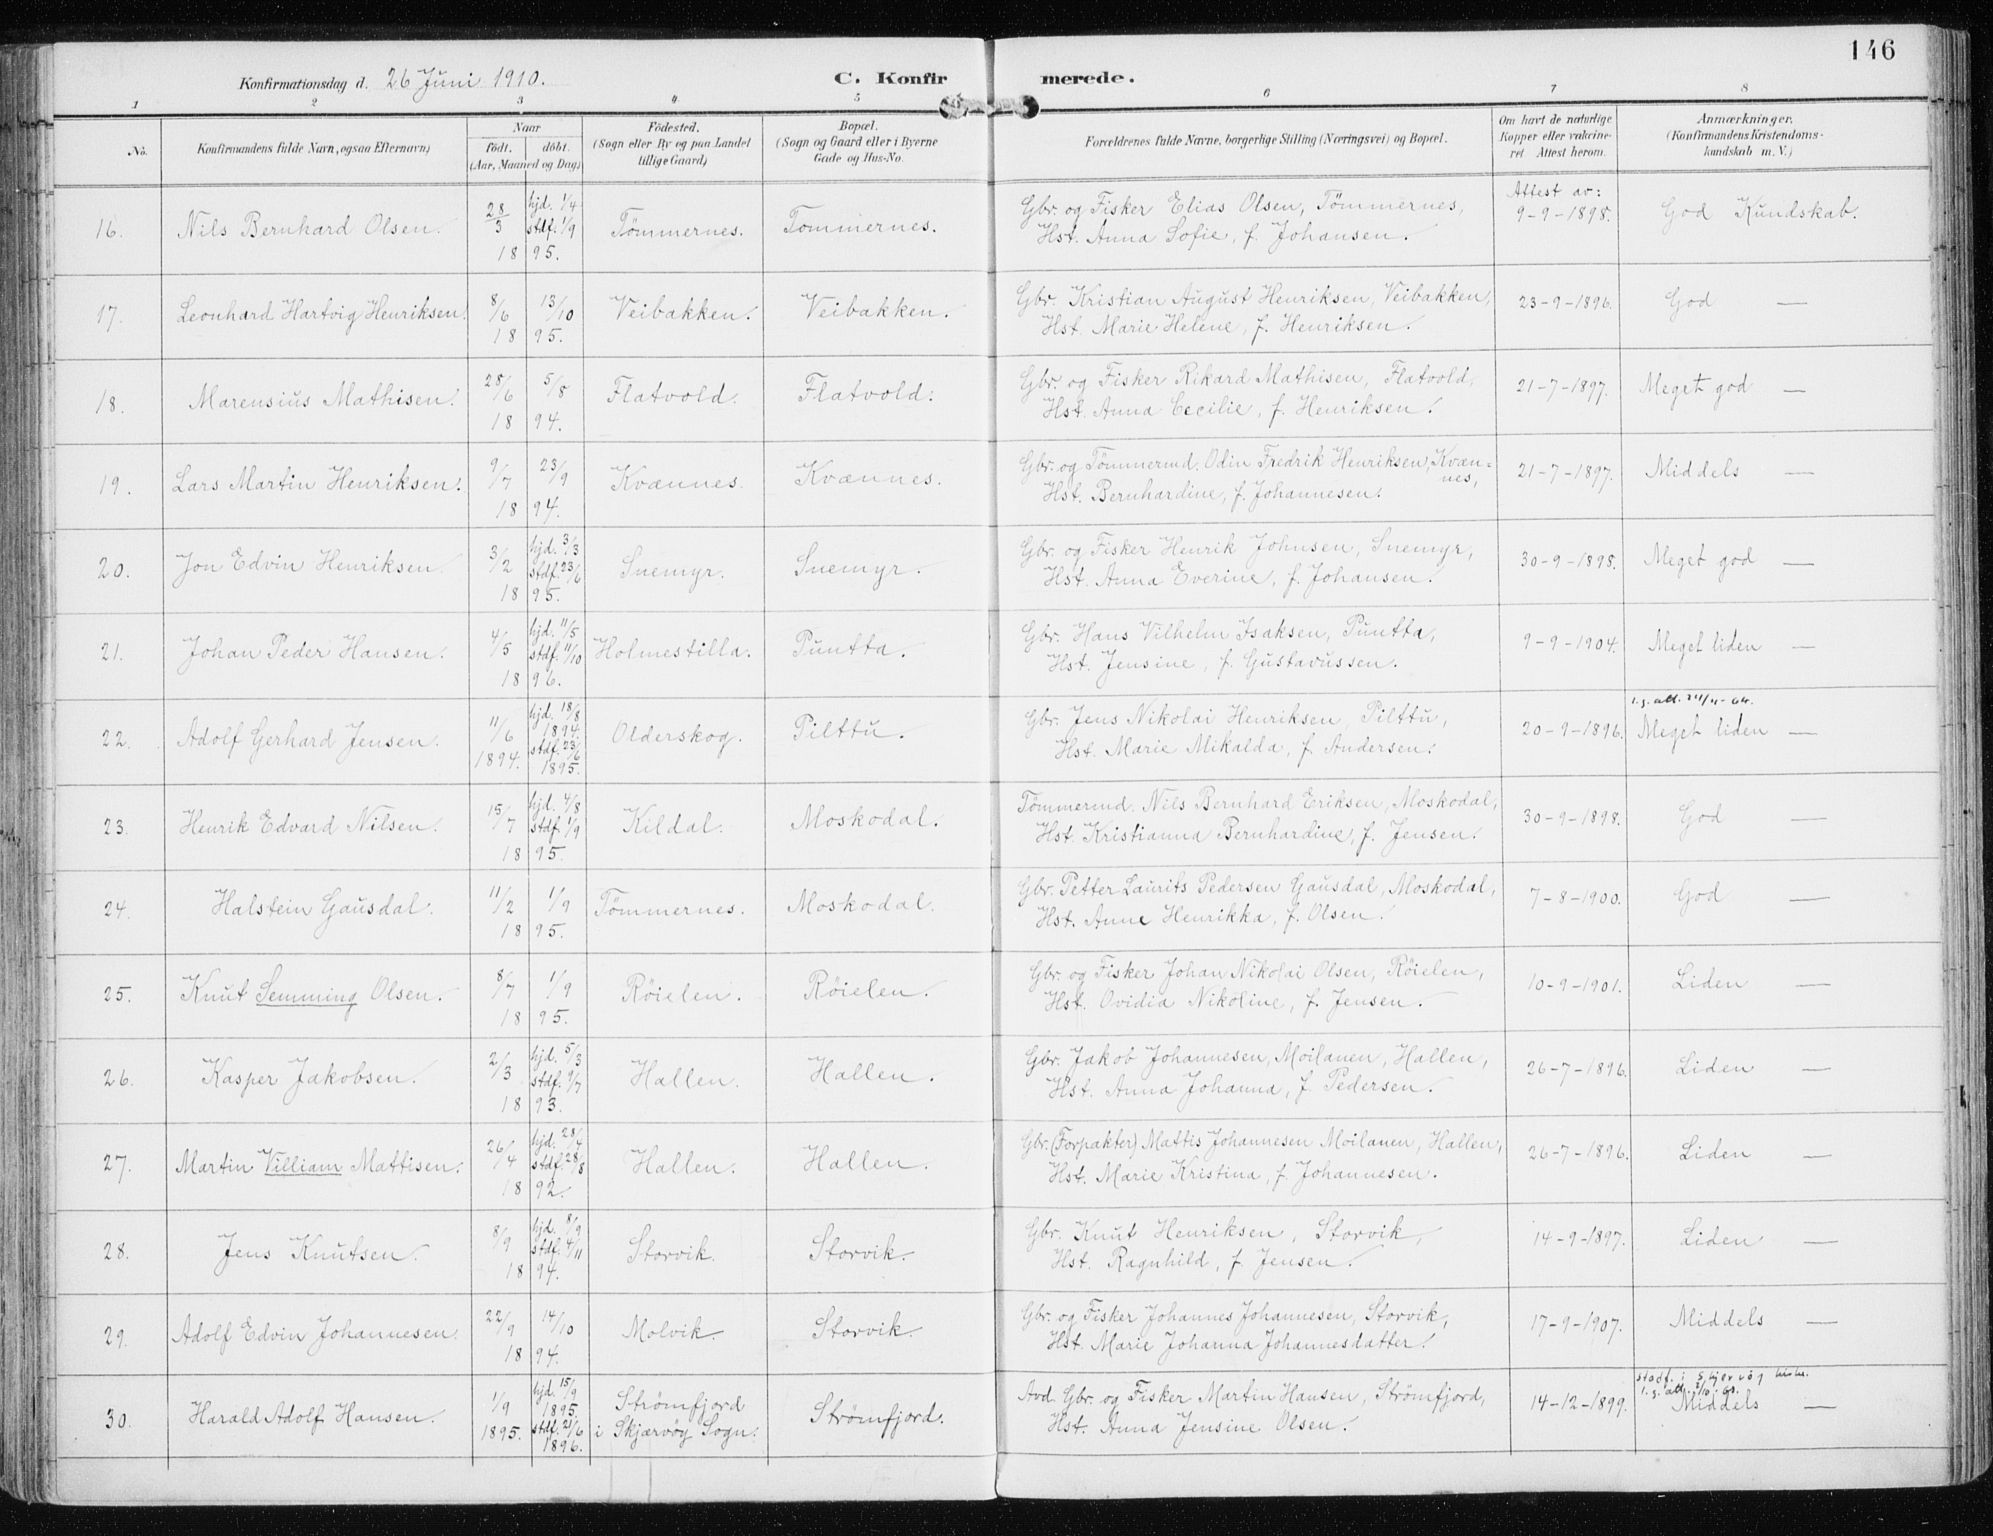 146
Konfirmationsdag d. 26 Juni 1910.
C. Konfirmerede.
1 2 3 4 5 6 7 8
No.
Konfirmandens fulde Navn, ogsaa Efternavn)
Naar
födt. döbt.
(Aar, Maaned og Dag)
Födested.
(Sogn eller By og paa Landet
tillige Gaard)
Bopæl.
(Sogn og Gaard eller i Byerne
Gade og Hus-No.
Forældrenes fulde Navne, borgerlige Stilling (Næringsvei) og Bopæl.
Om havt de naturlige
Kopper eller vakcine-
ret Attest herom.
Anmærkninger.
(Konfirmandens Kristendoms-
kundskab m. V.)
16. Nils Bernhard Olsen. 28/3 hjd. 1/4 stdf. 1/9 1895. Tömmernes. Tommernes. Gbr. og Fisker Elias Olsen, Tömmernes, Attest av: 9-9-1898. God Kundskab.
Hst. Anna Sofie, f. Johansen.
17. Leonhard Hartvig Henriksen. 8/6 13/10 1895. Veibakken. Veibakken. Gbr. Kristian August Henriksen, Veibakken, 23-9-1896. God —
Hst. Marie Helene, f. Henriksen.
18. Marensius Mathisen. 28/6 5/8 1894. Flatvold. Flatvold. Gbr. og Fisker Rikard Mathisen, Flatvold, 21-7-1897. Meget god —
Hst. Anna Cecilie, f. Henriksen.
19. Lars Martin Henriksen. 9/7 23/9 1894. Kvænnes. Kvænnes. Gbr. og Tömmermd. Odin Fredrik Henriksen, Kvæn=nes, 21-7-1897. Middels —
Hst. Bernhardine, f. Johannesen.
20. Jon Edvin Henriksen. 3/2 hjd. 3/3 stdf. 23/6 1895. Snemyr. Snemyr. Gbr. og Fisker Henrik Johnsen, Snemyr, 30-9-1898. Meget god —
Hst. Anna Everine, f. Johansen.
21. Johan Peder Hansen. 4/5 hjd. 11/5 stdf. 11/10 1896. Holmestilla. Puntta. Gbr. Hans Vilhelm Isaksen, Puntta, 9-9-1904. Meget liden —
Hst. Jensine, f. Gustavussen.
22. Adolf Gerhard Jensen. 11/6 1894. hjd. 18/8 1894. stdf. 23/6 1895. Olderskog. Pilttu. Gbr. Jens Nikolai Henriksen, Pilttu, 20-9-1896. Meget liden —
Hst. Marie Mikalda, f. Andersen.
23. Henrik Edvard Nilsen. 15/7 hjd. 4/8 stdf. 1/9 1895. Kildal. Moskodal. Tömmermd. Nils Bernhard Eriksen, Moskodal, 30-9-1898. God —
Hst. Kristianna Bernhardine, f. Jensen.
24. Halstein Gausdal. 11/2 1/9 1895. Tömmernes. Moskodal. Gbr. Petter Laurits Pedersen Gausdal, Moskodal, 7-8-1900. God —
Hst. Anne Henrikka, f. Olsen.
25. Knut Semming Olsen. 8/7 1/9 1895. Röielen. Röielen. Gbr. og Fisker Johan Nikolai Olsen, Röielen, 10-9-1901. Liden —
Hst. Ovidia Nikoline, f. Jensen.
26. Kasper Jakobsen. 2/3 hjd. 5/3 stdf. 9/7 1893. Hallen. Hallen. Gbr. Jakob Johannesen, Moilanen, Hallen, 26-7-1896. Liden —
Hst. Anna Johanna, f. Pedersen.
27. Martin Villiam Mattisen. 26/4 hjd. 28/4 stdf. 28/8 1892. Hallen. Hallen. Gbr. (Forpakter) Mattis Johannesen Moilanen, Hallen, 26-7-1896. Liden —
Hst. Marie Kristina, f. Johannesen.
28. Jens Knutsen. 8/9 hjd. 8/9 stdf. 4/11 1894. Storvik. Storvik. Gbr. Knut Henriksen, Storvik, 14-9-1897. Liden —
Hst. Ragnhild, f. Jensen.
29. Adolf Edvin Johannesen. 22/9 14/10 1894. Molvik. Storvik. Gbr. og Fisker Johannes Johannesen, Storvik, 17-9-1907. Middels —
Hst. Marie Johanna Johannesdatter.
30. Harald Adolf Hansen. 1/9 1895. hjd. 15/9 1895. stdf. 21/6 1896. Strömfjord i Skjærvöy Sogn. Strömfjord. Avd. Gbr. og Fisker Martin Hansen, Strömfjord, 14-12-1899. stadf. i Skjervöy Middels —
Hst. Anna Jensine Olsen.